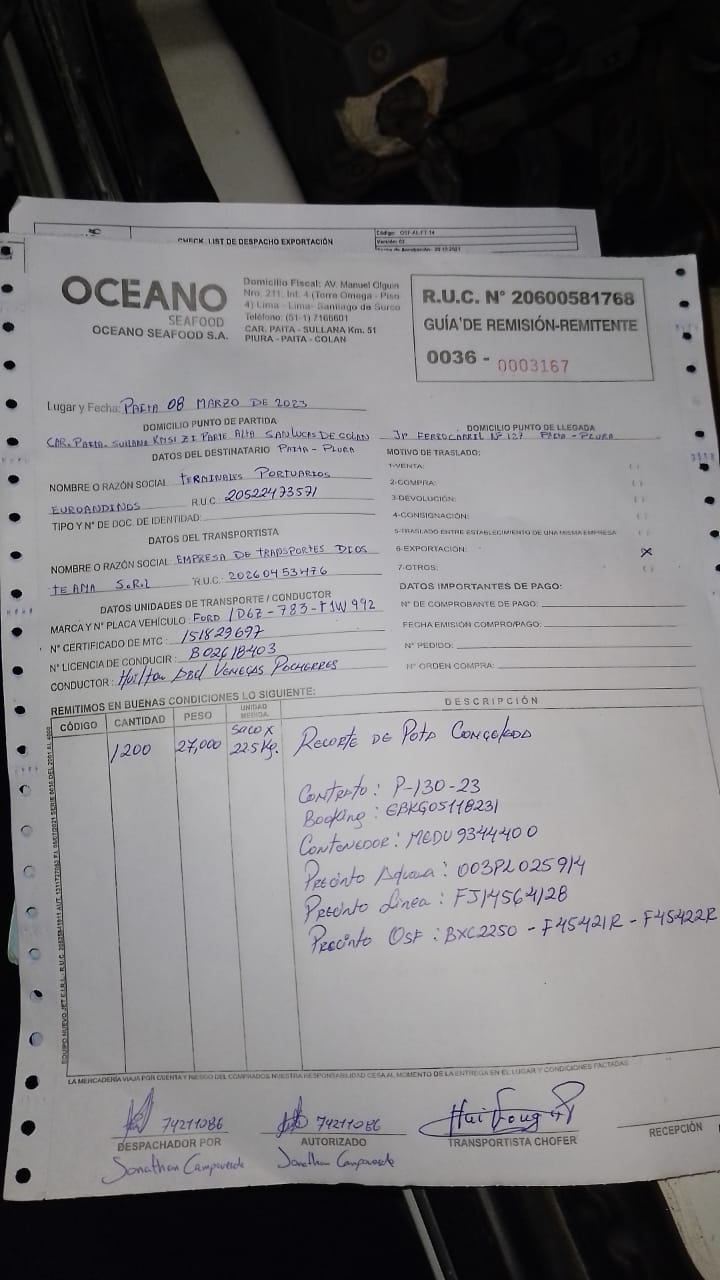 CHECK LIST DE DESPACHO EXPORTACIÓN
Código: OSF-AL-FT-14
Versión: 02
OCEANO
SEAFOOD
OCEANO SEAFOOD S.A.
Domicilio Fiscal: AV. Manuel Olguin
Nro. 211, Int. 4 (Torre Omega - Piso
4) Lima - Lima- Santiago de Surco
Teléfono: (51-1) 7166601
CAR. PAITA - SULLANA Km. 51
PIURA - PAITA - COLAN
R.U.C. N° 20600581768
GUÍA DE REMISIÓN-REMITENTE
0036 - 0003167
Lugar y Fecha: PAITA 08 MARZO DE 2023
DOMICILIO PUNTO DE PARTIDA
CAR. PAITA. SULLANA KM51 ZI PARTE ALTA SAN LUCAS DE COLAN
PAITA - PIURA
DOMICILIO PUNTO DE LLEGADA
Jr FERROCARRIL N° 127 PAITA - PIURA
DATOS DEL DESTINATARIO
NOMBRE O RAZÓN SOCIAL TERMINALES PORTUARIOS
EUROANDINOS R.U.C: 20522473571
TIPO Y N° DE DOC. DE IDENTIDAD:
DATOS DEL TRANSPORTISTA
NOMBRE O RAZÓN SOCIAL EMPRESA DE TRANSPORTES DIOS
TE AMA S.R.L R.U.C: 20260453476
DATOS UNIDADES DE TRANSPORTE / CONDUCTOR
MARCA Y N° PLACA VEHÍCULO: FORD / D6Z-783-F1W992
N° CERTIFICADO DE MTC: 151829697
N° LICENCIA DE CONDUCIR: B02618403
CONDUCTOR:
MOTIVO DE TRASLADO:
1-VENTA: ( )
2-COMPRA: ( )
3-DEVOLUCIÓN: ( )
4-CONSIGNACIÓN: ( )
5-TRASLADO ENTRE ESTABLECIMIENTO DE UNA MISMA EMPRESA ( )
6-EXPORTACIÓN: X
7-OTROS: ( )
DATOS IMPORTANTES DE PAGO:
N° DE COMPROBANTE DE PAGO:
FECHA EMISIÓN COMPRO/PAGO:
N° PEDIDO:
N° ORDEN COMPRA:
REMITIMOS EN BUENAS CONDICIONES LO SIGUIENTE:
CÓDIGO CANTIDAD PESO UNIDAD MEDIDA DESCRIPCIÓN
1200 27,000 SACO X 22.5 Kg. RECORTE DE POTA CONGELADA
CONTRATO: P-130-23
BOOKING: EBKG05118231
CONTENEDOR: MEDU 9344400
PRECINTO ADUANA: 003PL025914
PRECINTO LINEA: FJ14564128
PRECINTO OSF: BXC2250 - F45421R - F45422R
LA MERCADERÍA VIAJA POR CUENTA Y RIESGO DEL COMPRADOR NUESTRA RESPONSABILIDAD CESA AL MOMENTO DE LA ENTREGA EN EL LUGAR Y CONDICIONES PACTADAS
74211086
DESPACHADOR POR
Jonathan Campoverde
74211086
AUTORIZADO
Jonathan Campoverde
TRANSPORTISTA CHOFER
RECEPCIÓN